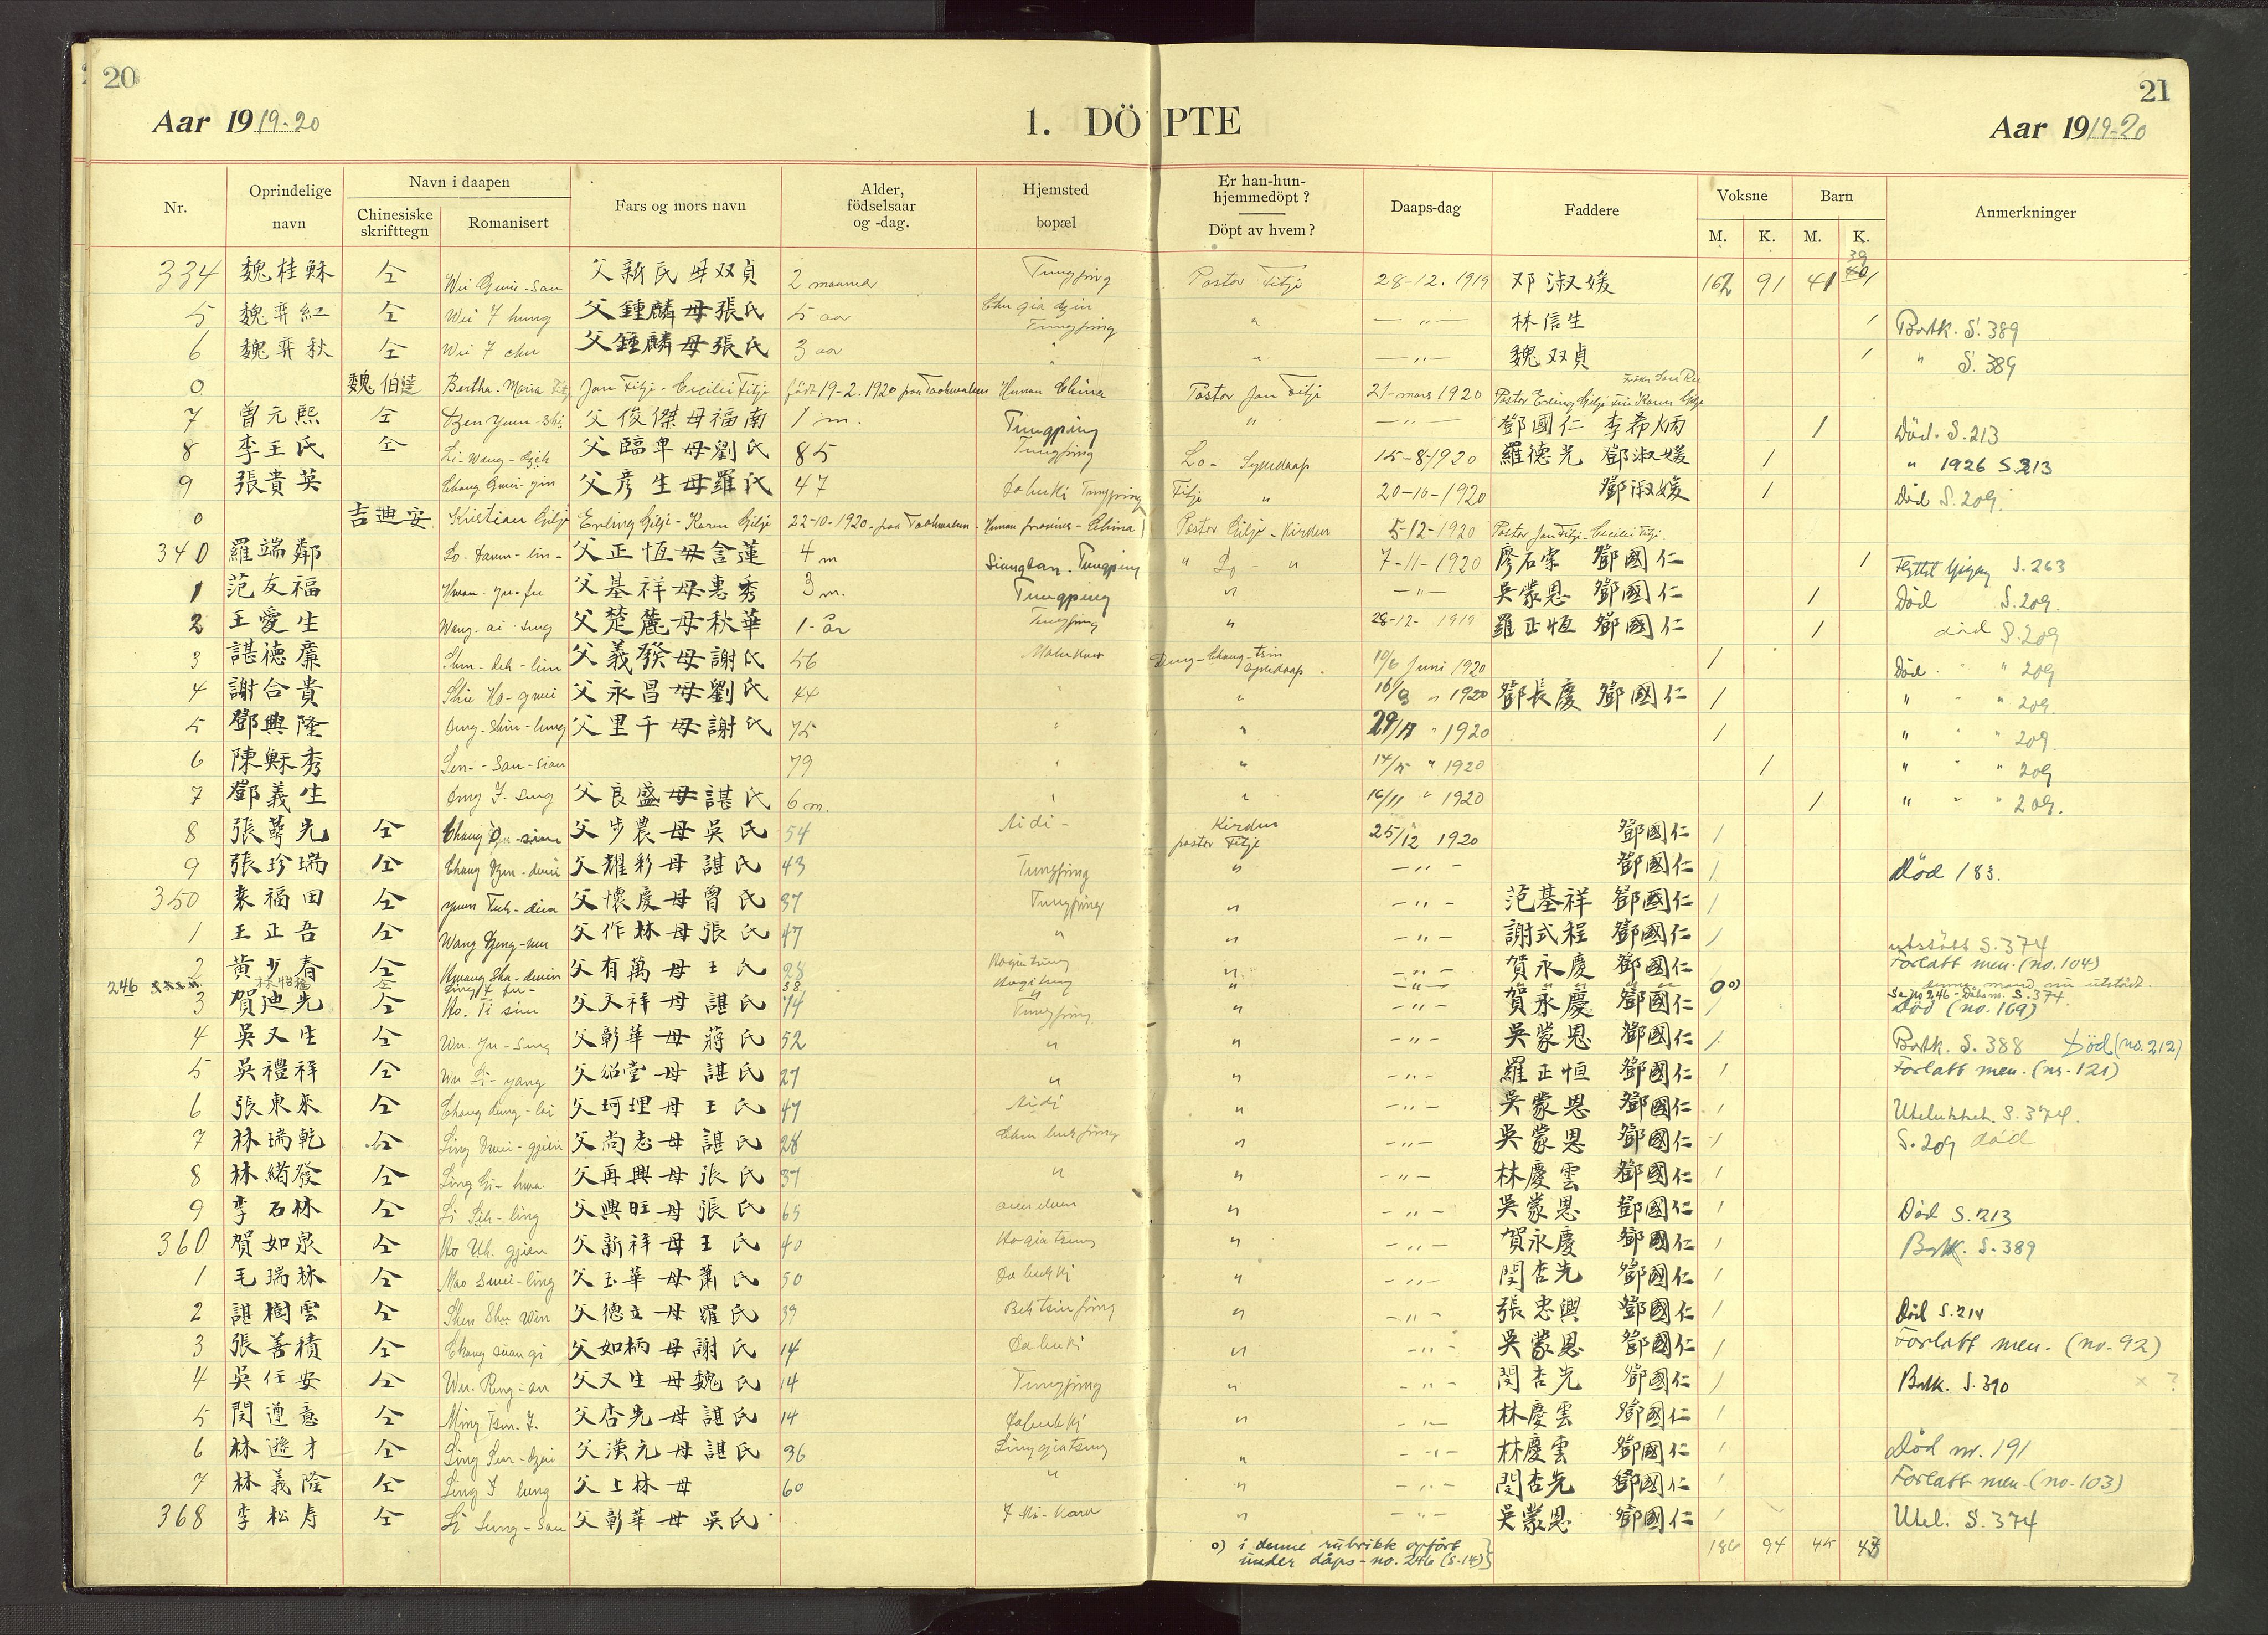 20
21
Aar 1919-20
1. DÖPTE
Aar 1919-20
Nr.
Oprindelige navn
Navn i daapen
Chinesiske skrifttegn
Romanisert
Fars og mors navn
Alder, födselsaar og -dag.
Hjemsted
bopæl
Er han-hun-hjemmedöpt?
Döpt av hvem?
Daaps-dag
Faddere
Voksne
M. K.
Barn
M. K.
Anmerkninger
334 魏桂穌 仝 Wei Gwei-San 父新民 母双貞 2 maaned Tungping Pastor Fitje 28-12.1919 邓淑媛 162 91 41 39 1
5 魏弈紅 仝 Wei I hung 父鍾麟母張氏 5 aar Tungping " — " — 林信生 1 Bortk. S. 389
6 魏弈秋 仝 Wei I chu 父鍾麟母張氏 3 aar " " — " — 魏双貞 1 " S. 389
0 魏伯達 Bertha-Maria Jan Fitje-Cecilie Fitje født 19-2.1920 Hunan China Pastor Jan Fitje 21-mars 1920 Pastor Erling Gilje
7 曾元熙 仝 父俊傑母福南 1 m. Tungping " — " — 鄧國仁 李希炳 1 Död. S. 213
8 李王氏 仝 Li-Wang- 父臨卑母劉氏 85 Tungping Lo- 15-8-1920 羅德光 鄧淑媛 1 " 1926 S 213
9 張貴英 Chang Gwei-yin 父彦生母羅氏 47 Tungping Fitje " 20-10-1920 鄧淑媛 1 Död S. 209.
0 吉迪安 Kristian Gilje Erling Gilje-Karen Gilje 22-10-1920- Hunan China Pastor Gilje-Kirken 5-12-1920 Pastor Jan Fitje-Cecilie Fitje.
340 羅端鄰 Lo- lin- 父正恆母含蓮 4 m Tungping " Lo- " 7-11-1920 廖石棠 鄧國仁 1 S. 263
1 范友福 Hwan-yu-fu 父基祥母惠秀 3 m. Tungping " — " — 吳蒙恩 鄧國仁 1 Död S. 209.
2 王愛生 Wang-ai-sung 父楚麓母秋華 1-år Tungping " 28-12-1919 羅正恆 鄧國仁 1 död S. 209
3 諶德廉 Shen-deh-lien 父義發母謝氏 56 10/6 Juni 1920 1 Död " 209
4 謝合貴 Shie Ho-gwei 父永昌母劉氏 44 " " 1920 鄧長慶 鄧國仁 1 " " " 209.
5 鄧興隆 Dung-Shin-lung 父里千母謝氏 75 " " 1920 1 " " " 209.
6 陳穌秀 79 " " 1920 1 " " " 209
7 鄧義生 Dung I-Sung 父良盛母諶氏 6 m. " 16/11 " 1920 1 " " " 209.
8 張萼先 仝 父步農母吳氏 54 Aidi- Kirken pastor Fitje 25/12 1920 鄧國仁 1
9 張珍瑞 仝 父耀彩母諶氏 43 Tungping " — " — 鄧國仁 1 död 183.
350 袁福田 仝 Yuen Fuh-dien 父懷慶母曾氏 37 Tungping " — " — 范基祥 鄧國仁 1
1 王正吾 仝 Wang 父作林母張氏 47 " " — " — 謝式程 鄧國仁 1 utstött S. 374
2 黃少春 仝 Hwang 父有萬母王氏 28 " — " — 賀永慶 鄧國仁 Forlatt men. (no. 104)
246 林怡福 仝 Ling I fu- 38 " — " — " " 0 o)
3 賀迪先 仝 Ho. Ti sien 父文祥母諶氏 74 Tungping " — " — 賀永慶 鄧國仁 Död (no. 169)
4 吳又生 仝 Wu. Yu-Sung 父彰華母蔣氏 52 " " — " — 吳蒙恩 鄧國仁 1 Bortk. S. 388 Död (no. 212)
5 吳禮祥 仝 Wu Li-yang 父紹堂母諶氏 27 " " — " — 羅正恒 鄧國仁 1 Forlatt men. (nr. 121)
6 張東來 仝 Chang dung-lai 父珂理母王氏 47 Aidi " — " — 吳蒙恩 鄧國仁 1 Utelukket. S. 374.
7 林瑞乾 仝 父尚志母諶氏 28 " — " — 吳蒙恩 鄧國仁 1 S. 209 död
8 林緒發 仝 父再興母張氏 37 " " — " — 林慶雲 鄧國仁 1
9 李石林 仝 Li Sih-ling 父興旺母張氏 65 " — " — 吳蒙恩 鄧國仁 1 Död S. 213
360 賀如泉 仝 Ho 父新祥母王氏 40 Hogiatsung " — " — 賀永慶 鄧國仁 1 Bortk. S. 389
1 毛瑞林 仝 Mao Swei-ling 父玉華母蕭氏 50 " — " — 閔杏先 鄧國仁 1
2 諶樹雲 仝 Shen Shu Win 父德立母羅氏 39 " — " — 張忠興 鄧國仁 1 Död S. 214
3 張善積 仝 Chang 父如柄母謝氏 14 " — " — 吳蒙恩 鄧國仁 1 Forlatt men. (no. 92)
4 吳任安 仝 Wu. Reng-an 父又生母魏氏 14 Tungping " — " — 閔杏先 鄧國仁 1 Bortk. S. 390 × ?
5 閔遵意 仝 Ming Tsen. I. 父杏先母諶氏 14 " — " — 林慶雲 鄧國仁 1
6 林遜才 仝 父漢元母諶氏 36 Linggiatsung " — " — 林慶雲 鄧國仁 1 Död nr. 191
7 林義隆 仝 Ling I lung 父上林母 60 " " — " — 閔杏先 鄧國仁 1 Forlatt men. (no. 103)
368 李松寿 仝 Li Sung-Sau 父彰華母吳氏 " — " — 吳蒙恩 鄧國仁 1 Utel. S. 374
o) i denne rubrikk opfört under dåps-no. 246 (S. 14)
186 94 45 43